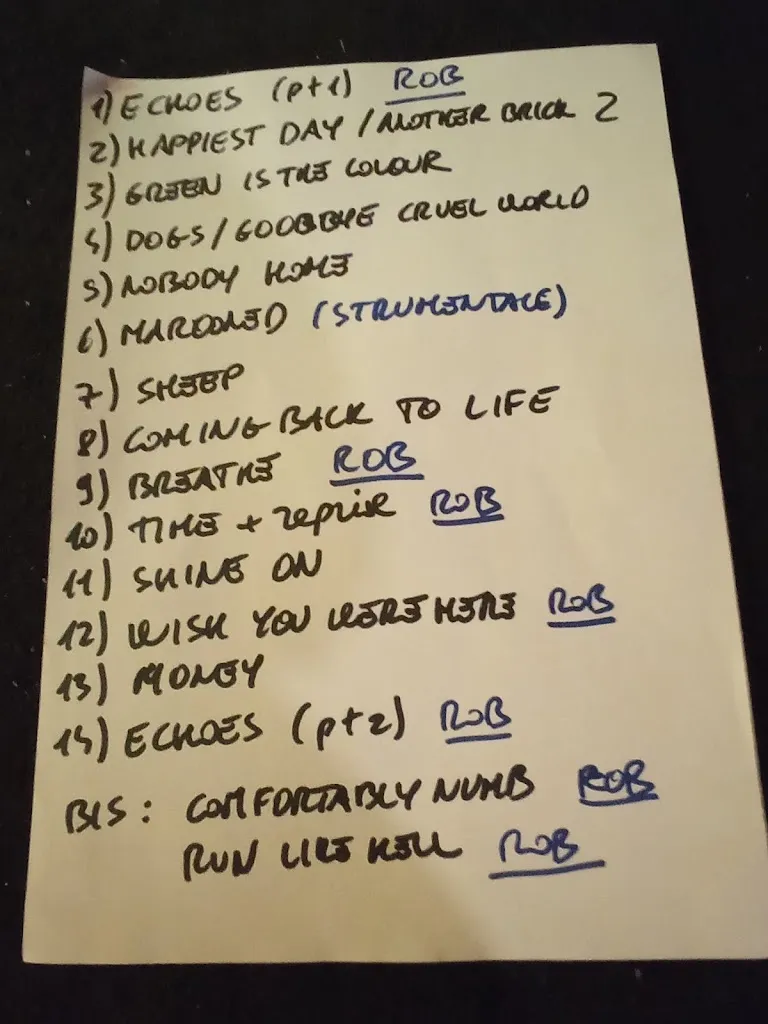 1) ECHOES (pt1) ROB
2) HAPPIEST DAY / ANOTHER BRICK 2
3) GREEN IS THE COLOUR
4) DOGS / GOODBYE CRUEL WORLD
5) NOBODY HOME
6) MAROONED (STRUMENTALE)
7) SHEEP
8) COMING BACK TO LIFE
9) BREATHE ROB
10) TIME + reprise ROB
11) SHINE ON
12) WISH YOU WERE HERE ROB
13) MONEY
14) ECHOES (pt2) ROB
BIS: COMFORTABLY NUMB ROB
RUN LIKE HELL ROB